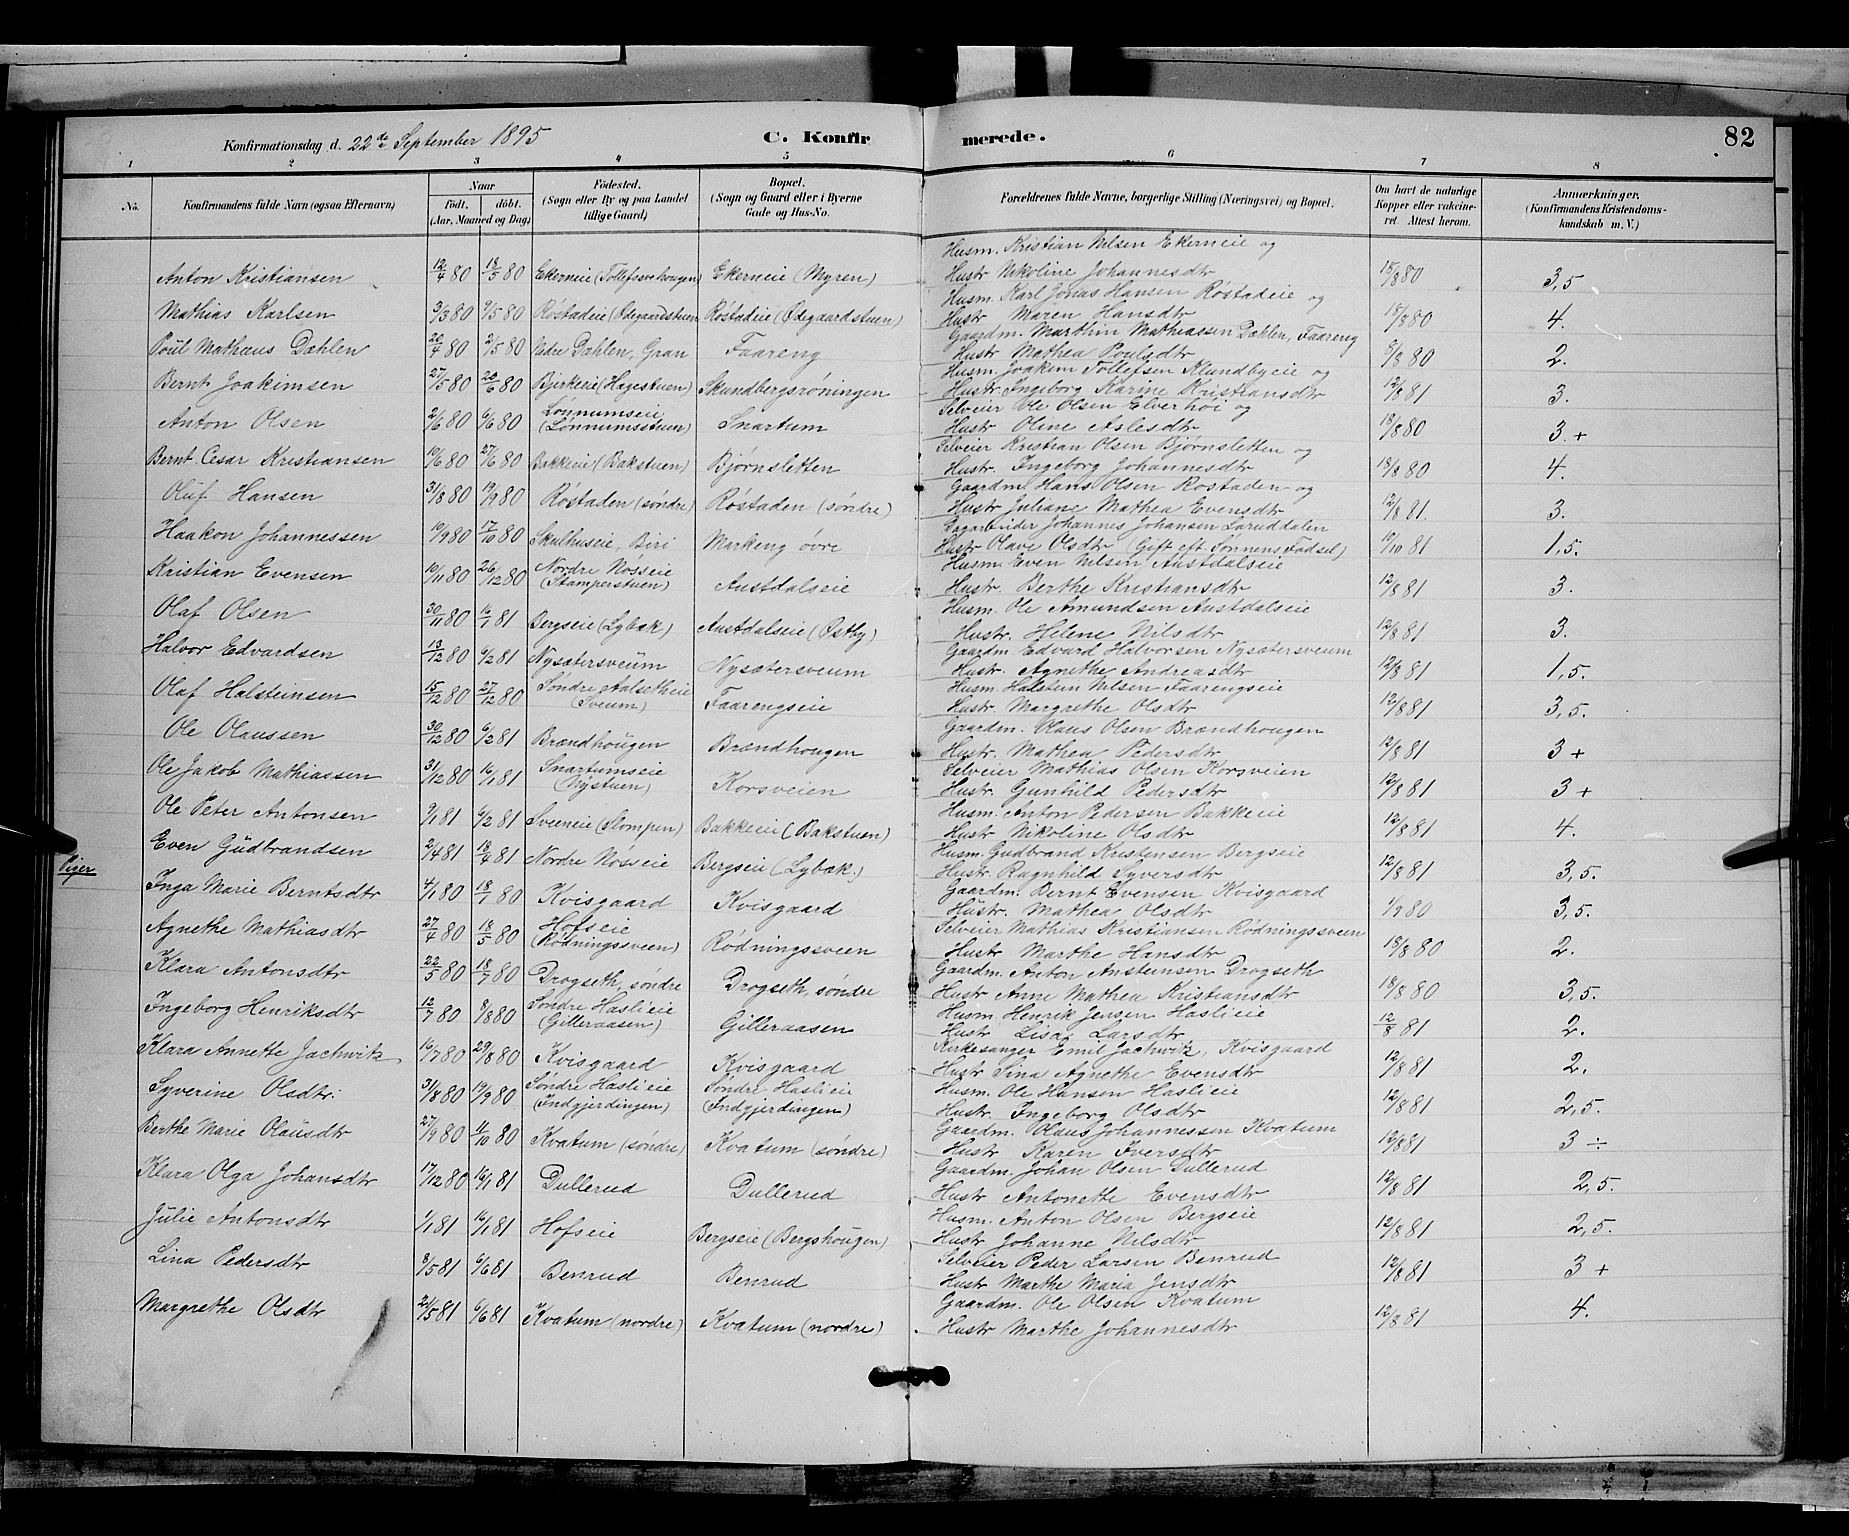 Konfirmationsdag d. 22de September 1895 C. Konfirmerede. 82
1 2 3 4 5 6 7 8
No. Konfirmandens fulde Navn (ogsaa Efternavn) Naar født. døbt. (Aar, Maaned og Dag) Fødested. (Sogn eller By og paa Landet tillige Gaard) Bopæl. (Sogn og Gaard eller i Byerne Gade og Hus-No. Forældrenes fulde Navne, borgerlige Stilling (Næringsvei) og Bopæl. Om havt de naturlige Kopper eller vakcineret. Attest herom. Anmærkninger. (Konfirmandens Kristendomskundskab m. V.)
Husm. Kristian Nilsen Ekerneie og
Anton Kristiansen 12/4 80 18/5 80 Ekerneie (Tollefsvehougen) Ekerneie (Myren) Hustr Nikoline Johannesdtr 18/8 80 3,5
Husm. Karl Jonas Hansen Røstadeie og
Mathias Karlsen 3/3 80 9/5 80 Røstadeie (Ødegaardstuen Røstadeie (Ødegaardstuen) Hustr Maren Hansdtr 18/8 80 4.
Gaardm. Marthin Mathiassen Dæhlen, Faareng
Poul Mathæus Dæhlen 20/4 80 2/5 80 Nedre Dæhlen, Gran Faareng Hustr Mathea Poulsdtr 8/8 80 2.
Husm. Joakim Tollefsen Klundbyeie og
Bernt Joakimsen 27/5 80 20/6 80 Bjerkeie (Hagestuen) Skundbergsrøningen Hustr Ingeborg Karine Kristiansdtr 12/8 81 3.
Selveier Ole Olsen Elverhøi og
Anton Olsen 2/6 80 6/6 80 Lønnumseie (Lønnumsstuen) Snartum Hustr Oline Aslesdtr 18/8 80 3.+
Selveier Kristian Olsen Bjørnsletten og
Bernt Cesar Kristiansen 10/6 80 27/6 80 Bakkeie (Bakstuen) Bjørnsletten Hustr. Ingeborg Johannesdtr 18/8 80 4.
Gaardm. Hans Olsen Røstaden og
Oluf Hansen 31/8 80 19/9 80 Røstaden (søndre) Røstaden (søndre) Hustr Juliane Mathea Evensdtr 12/8 81. 3.
Dagarbeider Johannes Johansen Laruddalen
Haakon Johannessen 10/9 80 17/10 80 Skulhuseie, Biri Markeng øvre Hustr Olave Olsdtr (Gift eft. Sønnens Fødsel) 10/10 81 1,5.
Husm. Even Nilsen Austdalseie
Kristian Evensen 10/11 80 26/12 80 Nordre Nøsseie (Stamperstuen) Austdalseie Hustr. Berthe Kristiansdtr 12/8 81 3.
Husm. Ole Amundsen Austdalseie
Olaf Olsen 30/11 80 16/1 81 Bergseie (Lybæk) Austdalseie (Østby) Hustr. Helene Nilsdtr 12/8 81 3.
Gaardm. Edvard Halvorsen Nysætersveum
Halvor Edvardsen 13/12 80 6/2 81 Nysætersveum Nysætersveum Hustr. Agnethe Andreasdtr 12/8 81 1,5.
Husm. Halstein Nilsen Faarengseie
Olaf Halsteinsen 15/12 80 27/12 80 Søndre Aalsetheie (Sveum) Faarengseie Hustr. Margrethe Olsdtr 12/8 81 3,5.
Gaardm. Olaus Olsen Brændhougen
Ole Olaussen 30/12 80 6/2 81 Brændhougen Brændhougen Hustr. Mathea Pedersdtr 12/8 81 3+
Selveier Mathias Olsen Korsveien
Ole Jakob Mathiassen 31/12 80 16/1 81 Snartumseie (Nystuen) Korsveien Hustr. Gunhild Pedersdtr 12/8 81 3+
Husm. Anton Pedersen Bakkeie
Ole Peter Antonsen 9/1 81 6/2 81 Sveeneie (Slompen) Bakkeie (Bakstuen) Hustr Nikoline Olsdtr 12/8 81 4.
Husm. Gudbrand Kristensen Bergseie
Even Gudbrandsen 2/4 81 18/4 81 Nordre Nøsseie Bergseie (Lybæk.) Hustr. Ragnhild Syversdtr 12/8 81 3,5.
Piger
Gaardm. Bernt Evensen Kvisgaard
Inga Marie Berntsdtr 4/1 80 18/1 80 Kvisgaard Kvisgaard Hustr. Mathea Olsdtr 1/9 80 3,5.
Selveier Mathias Kristiansen Rødningssveen
Agnethe Mathiasdtr 27/4 80 18/5 80 Hofseie (Rødningssveen) Rødningssveen Hustr. Marthe Hansdtr 18/8 80 2.
Gaardm. Anton Austensen Drogseth
Klara Antonsdtr 22/5 80 18/7 80 Drogseth, søndre Drogseth, søndre Hustr Anne Mathea Kristiansdtr 18/8 80 3,5.
Husm. Henrik Jensen Haslieie
Ingeborg Henriksdtr 12/7 80 8/8 80 Søndre Haslieie (Gilleraasen) Gilleraasen Hustr Lisa Larsdtr 12/8 81 2.
Kirkesanger Emil Jachwitz, Kvisgaard
Klara Annette Jachwitz 16/7 80 29/8 80 Kvisgaard Kvisgaard Hustr Sina Agnethe Evensdtr 12/8 81 2.
Husm. Ole Hansen Haslieie
Syverine Olsdtr. 31/8 80 19/9 80 Søndre Haslieie (Indgjerdingen) Søndre Haslieie (Indgjerdingen) Hustr. Ingeborg Olsdtr 12/8 81 2,5.
Gaardm. Olaus Johannessen Kvatum
Berthe Marie Olausdtr 27/9 80 11/10 80 Kvatum (søndre) Kvatum (søndre) Hustr Karen Iversdtr 12/8 81 3 ÷
Gaardm. Johan Olsen Dullerud
Klara Olga Johansdtr 17/12 80 16/1 81 Dullerud Dullerud Hustr Antonette Evensdtr 12/8 81 2,5.
Husm. Anton Olsen Bergseie
Julie Antonsdtr 1/1 81 16/1 81 Hofseie Bergseie (Bergshougen) Hustr Johanne Nilsdtr 12/8 81 2,5.
Selveier Peder Larsen Benrud
Lina Pedersdtr 8/5 81 6/6 81 Benrud Benrud Hustr Marthe Maria Jensdtr 12/8 81 3+
Gaardm. Ole Olsen Kvatum
Margrethe Olsdtr 21/5 81 6/6 81 Kvatum (nordre) Kvatum (nordre) Hustr Marthe Johannesdtr 12/8 81 4.